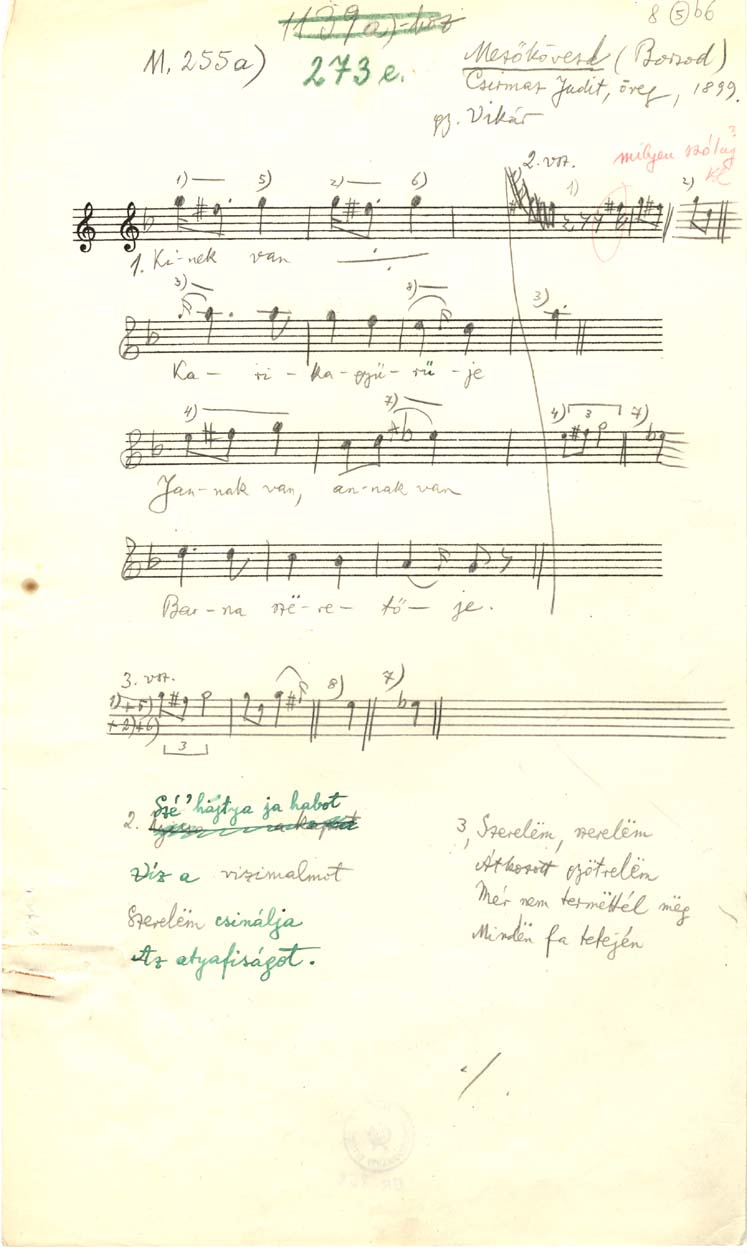 1139a)-hoz
8 (5) b6
M. 255a)
273 e.
Mezőkövesd (Borsod)
Csirmaz Judit, öreg, 1899.
gy. Vikár
2. vsz.
milyen szólaj?
KZ
1) 5) 2) 6) 1) 2)
1. Ki-nek van
3) 8) 3)
Ka- ri- ka-gyü-rü-je
4) 7) 4) 3 7)
Jan-nak van, an-nak van
Bar-na szë-re-tő-je.
3. vsz.
1)+5) 8) 7)
+2)+6)
3
2. Szé' hajtya ja habot
Víz a vizimalmot
Szerelëm csinálja
Az atyafiságot.
3, Szerelëm, szerelëm
Átkozott gyötrelëm
Mér nem termëttél mëg
Mindën fa tetején
./.